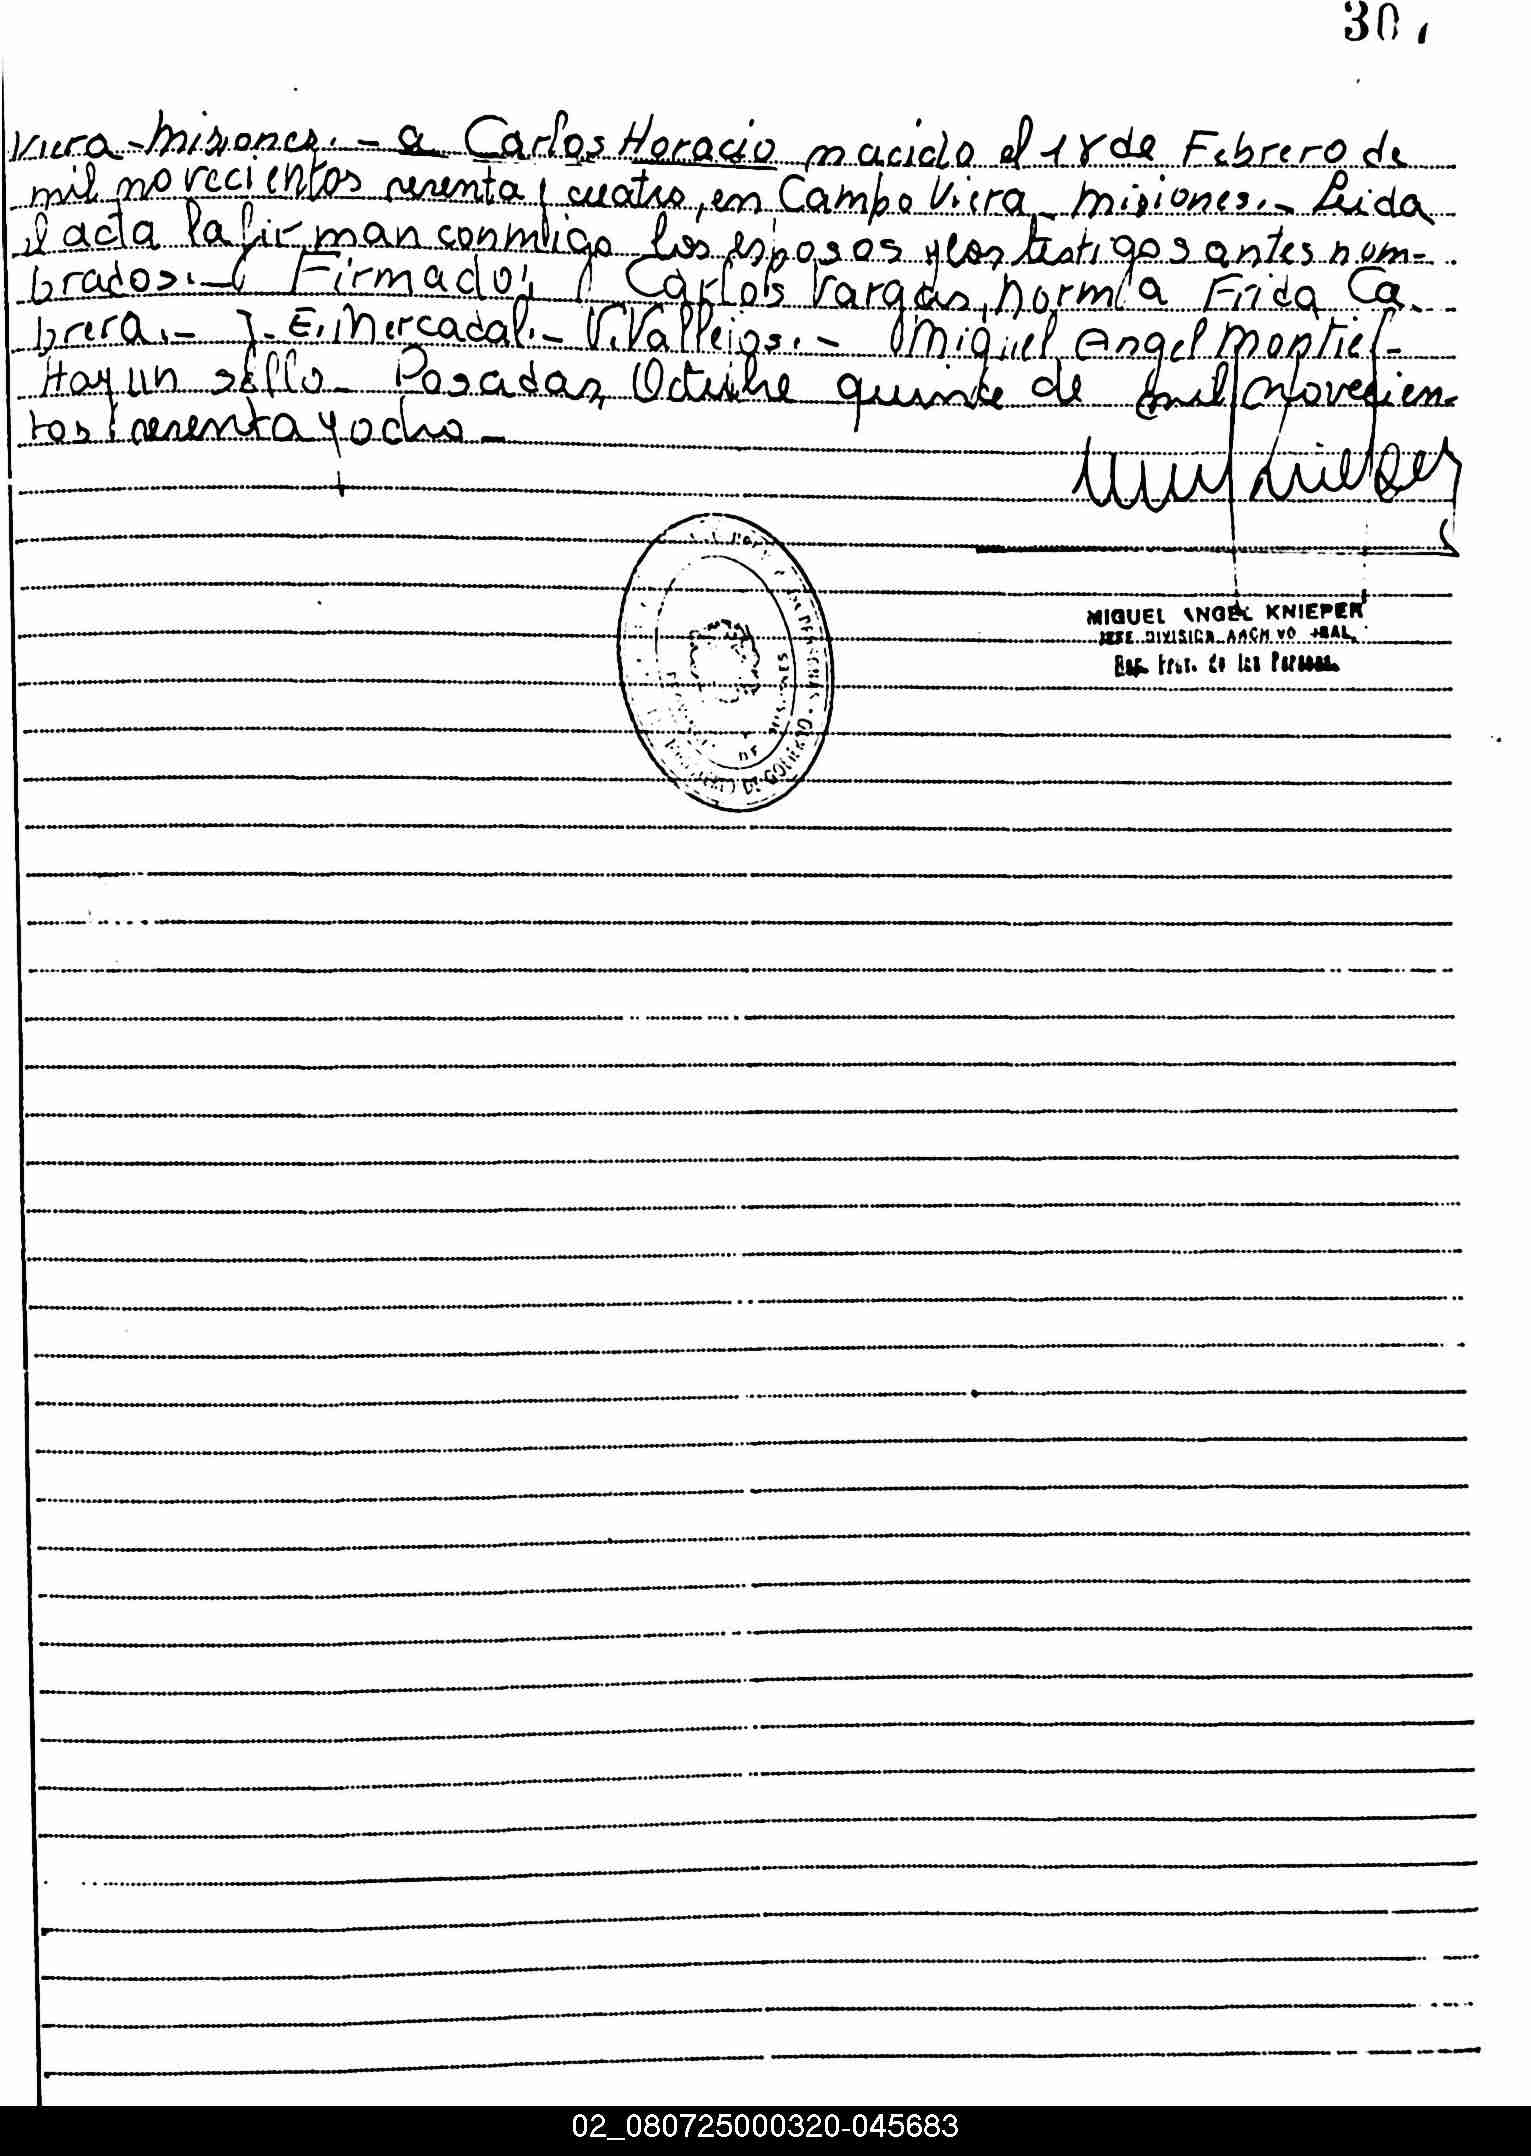 Viera - Misiones. - a Carlos Horacio nacido el 18 de Febrero de
mil novecientos sesenta y cuatro, en Campo Viera - Misiones. - Leida
el acta la firman conmigo los esposos y los testigos antes nom-
brados. - ( Firmado: ) Carlos Vargas, Norma Frida Ca-
brera. - J. E. Mercadal. - V. Vallejos. - Miguel Angel Montiel -
Hay un sello - Posadas, Octubre quince de mil novecien-
tos sesenta y ocho -
MIGUEL ANGEL KNIEPER
JEFE DIVISION
de las Personas
DE MISIONES
MINISTERIO DE GOBIERNO
02_080725000320-045683